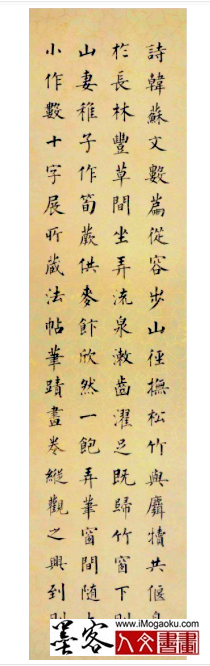 詩韓蘇文數篇從容步山徑撫松竹與麛犢共偃息
扵長林豐草間坐弄流泉漱齒濯足既歸竹窗下則
山妻稚子作筍蕨供麥飰欣然一飽弄筆窗間随
小作數十字展所蔵法帖筆蹟畫卷縱觀之興到則
www.iMogaoku.com
墨客 人文書畫